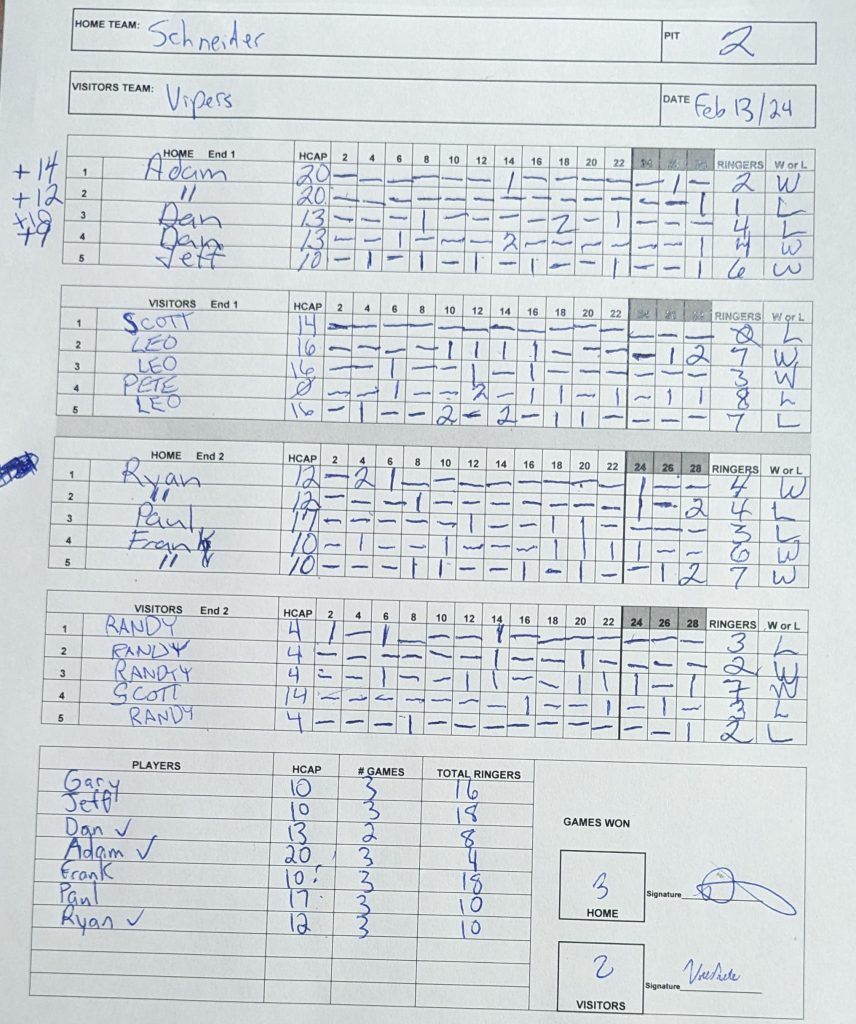 HOME TEAM: Schneider PIT 2
VISITORS TEAM: Vipers DATE Feb 13/24
HOME End 1 HCAP 2 4 6 8 10 12 14 16 18 20 22 24 26 28 RINGERS W or L
+14 1 Adam 20 - - - - - - 1 - - - - - 1 - 2 W
+12 2 " 20 - - - - - - - - - - - - - 1 1 L
+18 3 Dan 13 - - - 1 - - - - 2 - 1 - - - 4 L
+9 4 Dan 13 - - 1 - - - 2 - - - - - - 1 4 W
5 Jeff 10 - 1 - 1 - 1 - 1 - - 1 - - 1 6 W
VISITORS End 1 HCAP 2 4 6 8 10 12 14 16 18 20 22 24 26 28 RINGERS W or L
1 SCOTT 14 - - - - - - - - - - - - - - 0 L
2 LEO 16 - - - - 1 1 1 1 - - - - 1 2 7 W
3 LEO 16 - - 1 - - 1 - 1 - - - - - - 3 W
4 PETE 0 - - 1 - - 2 - 1 1 - 1 - 1 1 8 L
5 LEO 16 - 1 - - 2 - 2 - 1 1 - - - - 7 L
HOME End 2 HCAP 2 4 6 8 10 12 14 16 18 20 22 24 26 28 RINGERS W or L
1 Ryan 12 - 2 1 - - - - - - - - 1 - - 4 W
2 " 12 - - - 1 - - - - - - - 1 - 2 4 L
3 Paul 17 - - - - - 1 - - 1 1 - - - - 3 L
4 Frank 10 - 1 - - 1 - - - 1 1 1 1 - - 6 W
5 " 10 - - - 1 1 - - 1 - 1 - - 1 2 7 W
VISITORS End 2 HCAP 2 4 6 8 10 12 14 16 18 20 22 24 26 28 RINGERS W or L
1 RANDY 4 1 - 1 - - - 1 - - - - - - - 3 L
2 RANDY 4 - - - - - - 1 - - 1 - - - - 2 W
3 RANDY 4 - - 1 - 1 1 - - - 1 1 1 - 1 7 W
4 SCOTT 14 - - - - - - - 1 - - 1 - 1 - 3 L
5 RANDY 4 - - - 1 - - - - - - - - - 1 2 L
PLAYERS HCAP # GAMES TOTAL RINGERS
Gary 10 3 16
Jeff 10 3 18
Dan ✓ 13 2 8
Adam ✓ 20 3 4
Frank 10 3 18
Paul 17 3 10
Ryan ✓ 12 3 10
GAMES WON
3
HOME
Signature
2
VISITORS
Signature